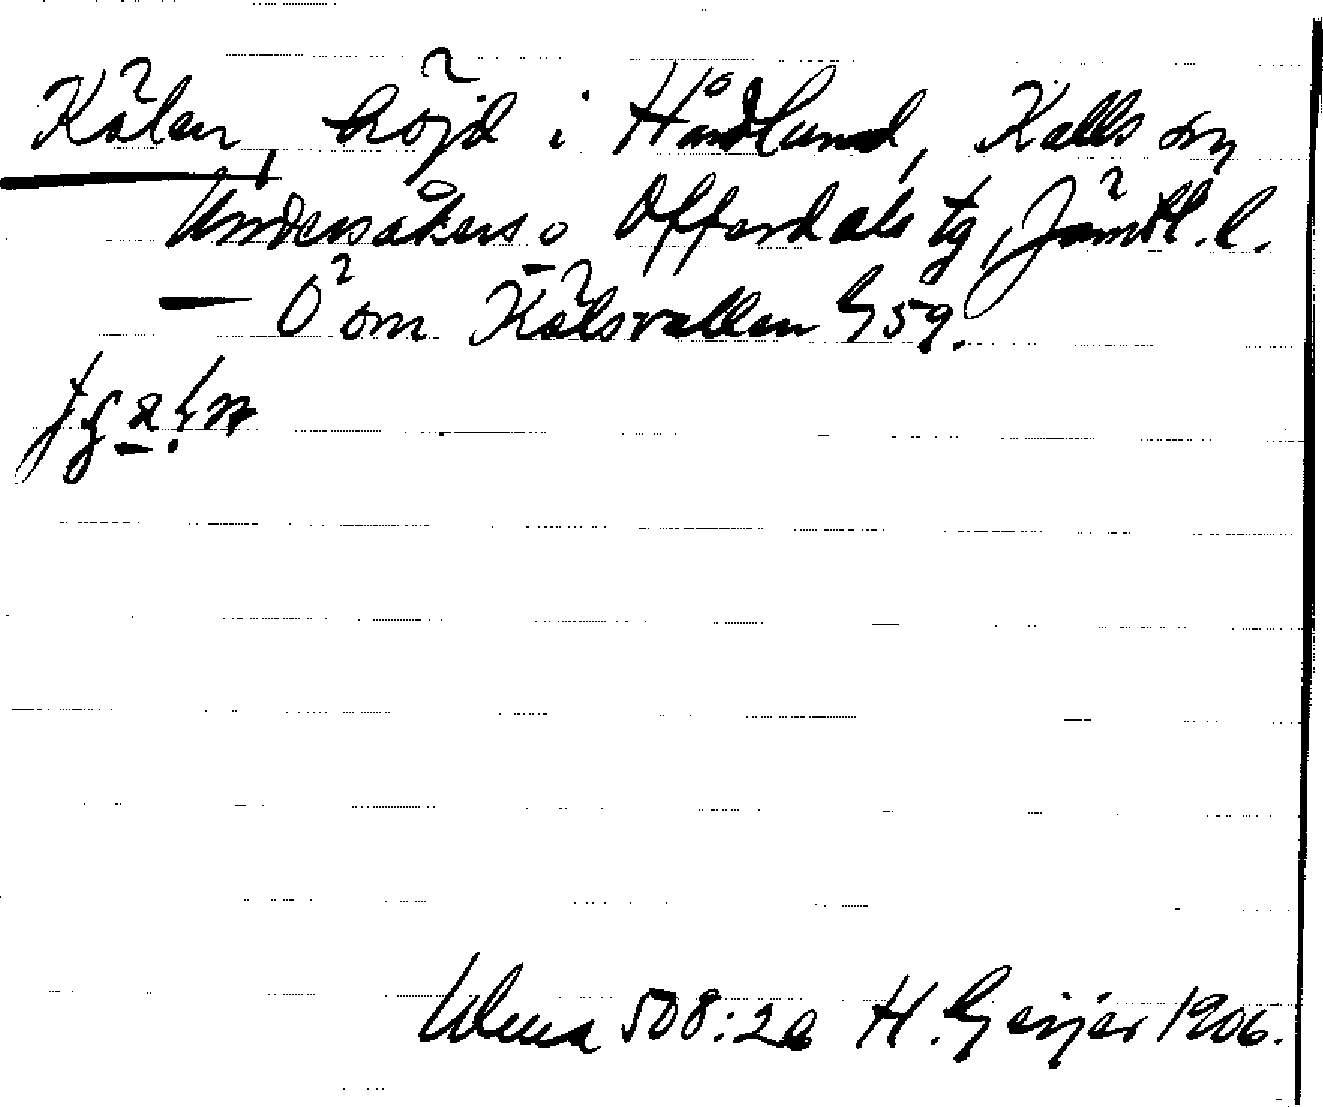 Kölen, höjd i Håndlund, Kalls sn,
Undersåkers o Offerdals tg, Jämtl. l.
— Ö om Kölsvallen G 59.
Ulma 508:2a H. Geijer 1906.